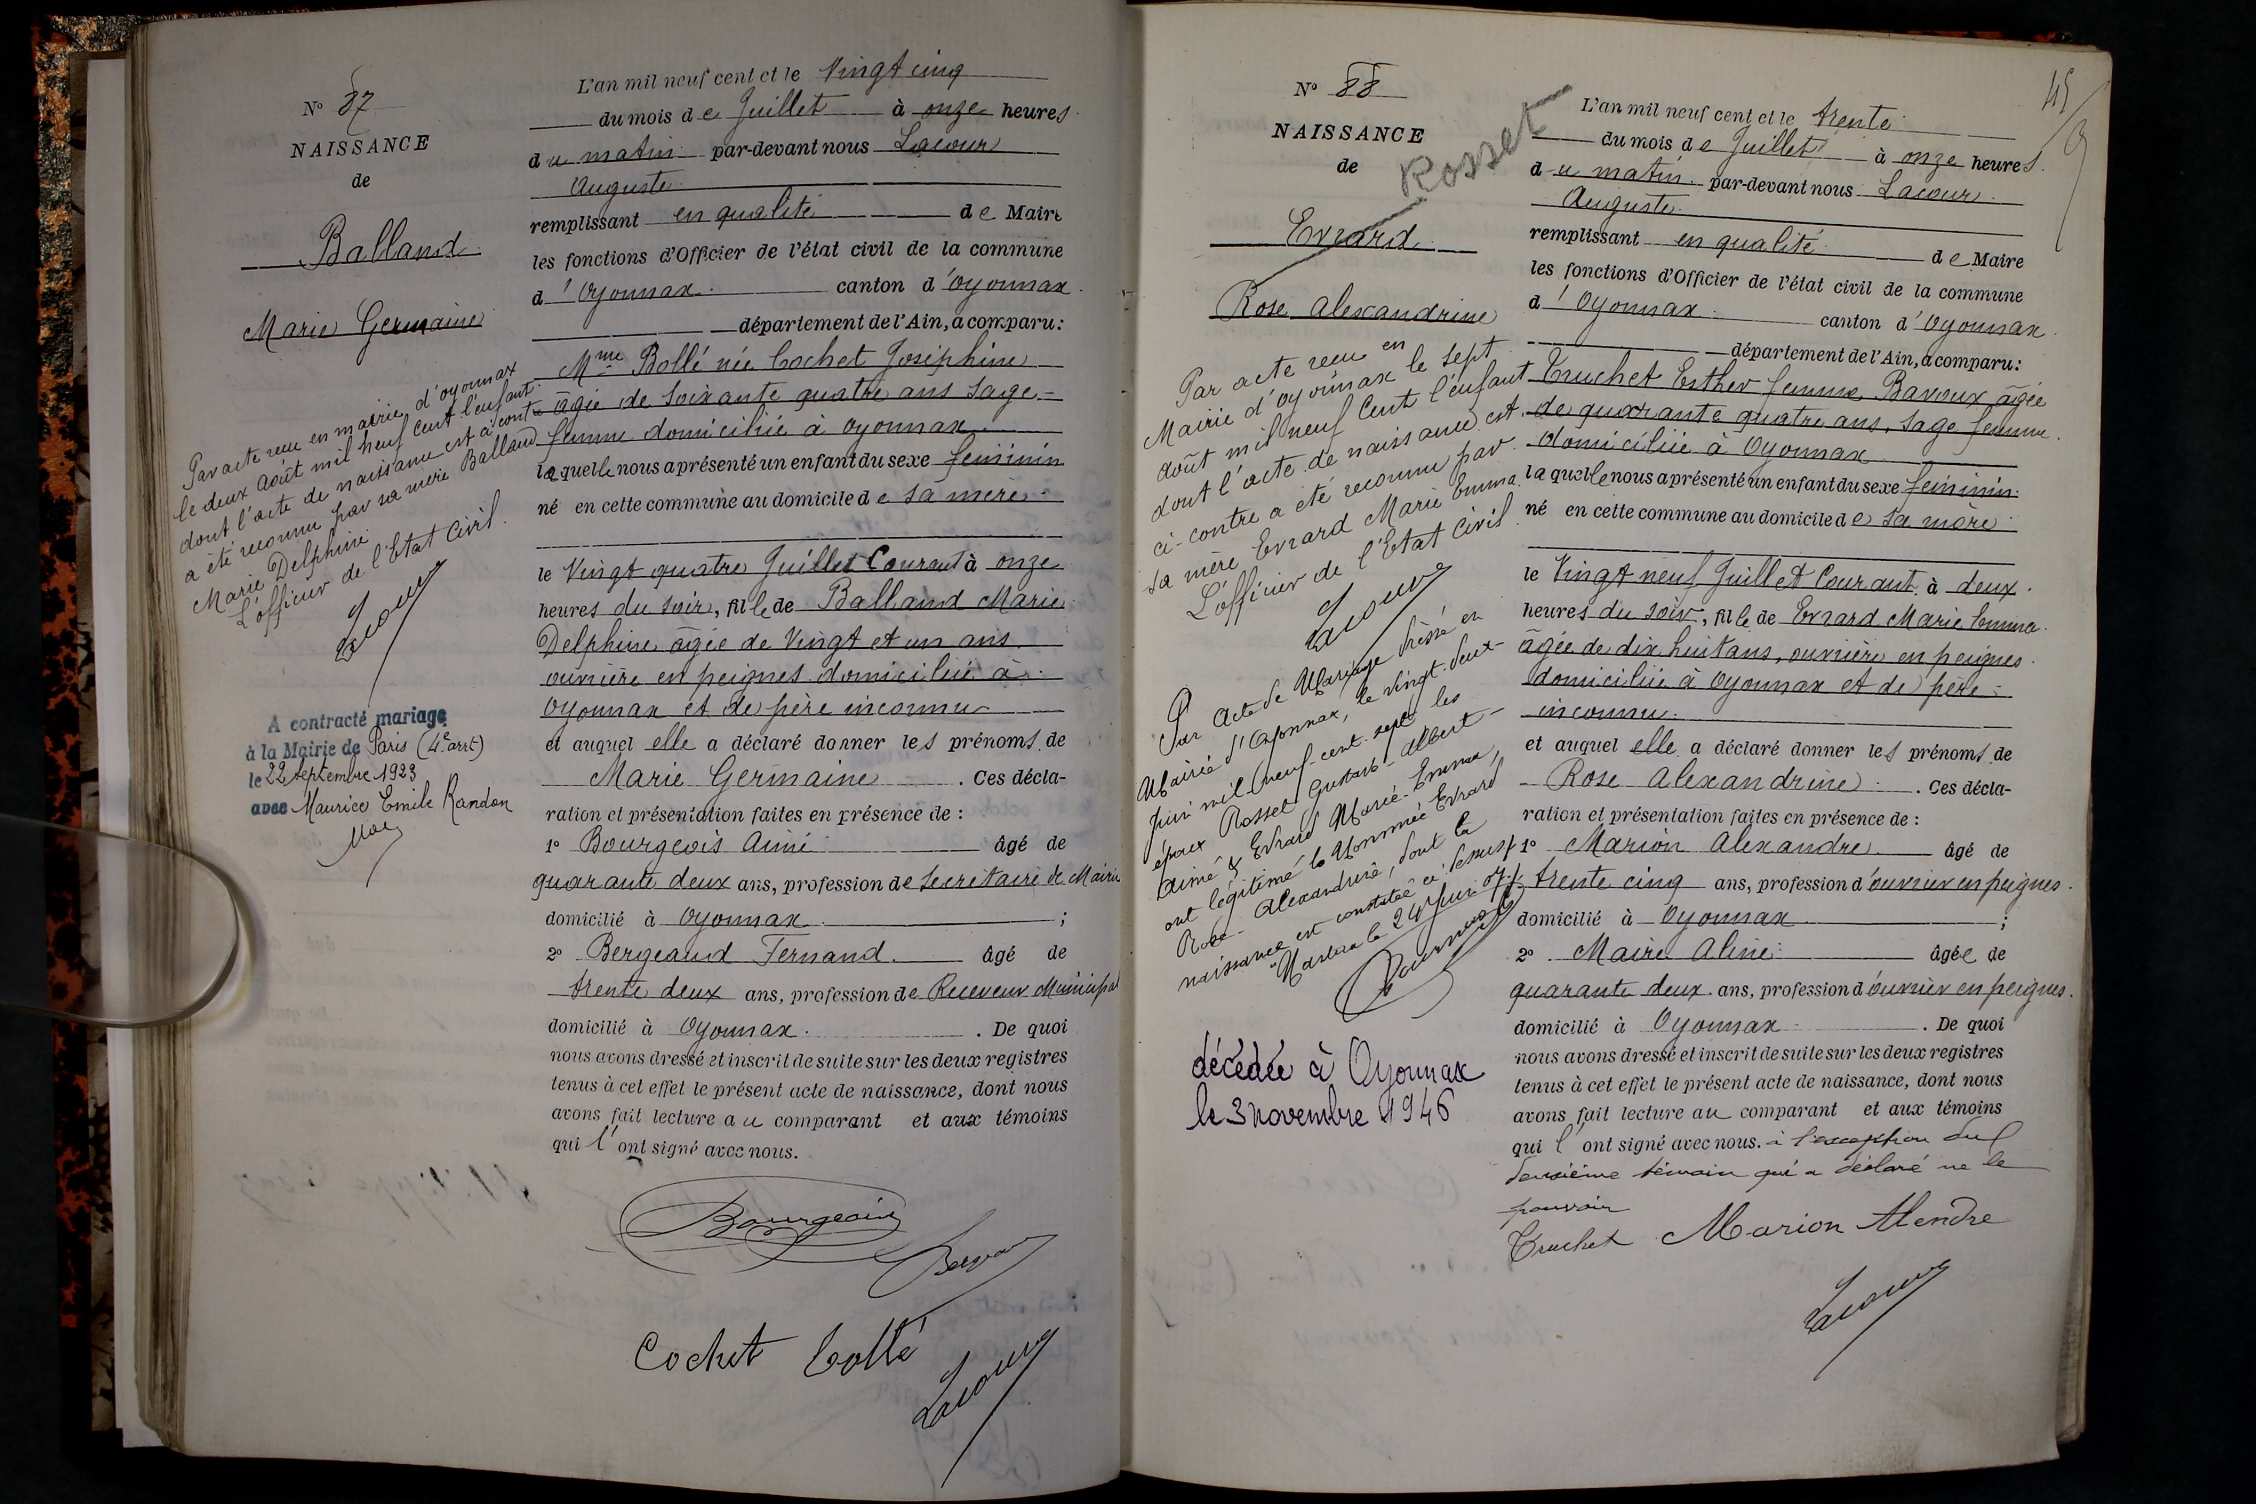 N° 87
NAISSANCE
de
Balland
Marie Germaine
Par acte reçu en mairie d'oyonnax
le deux août mil neuf cent l'enfant
dont l'acte de naissance est ci-contre
a été reconnu par sa mère Balland
Marie Delphine
L'officier de l'Etat Civil.
Lacour
A contracté mariage
à la Mairie de Paris (4e arrt)
le 22 septembre 1923
avec Maurice Emile Randon
L'an mil neuf cent et le Vingt cinq
du mois de Juillet à onze heures
du matin par-devant nous Lacour
Auguste
remplissant en qualité de Maire
les fonctions d'Officier de l'état civil de la commune
d'Oyonnax canton d'Oyonnax
département de l'Ain, a comparu:
Mme Bollé née Cochet Joséphine
âgée de soixante quatre ans sage-
femme domiciliée à Oyonnax
laquelle nous a présenté un enfant du sexe féminin
né en cette commune au domicile de sa mère
le Vingt quatre Juillet Courant à onze
heures du soir, fille de Balland Marie
Delphine âgée de Vingt et un ans
ouvrière en peignes domiciliée à
Oyonnax et de père inconnu
et auquel elle a déclaré donner les prénoms de
Marie Germaine. Ces décla-
ration et présentation faites en présence de :
1° Bourgeois Aimé âgé de
quarante deux ans, profession de Secrétaire de Mairie
domicilié à Oyonnax ;
2° Bergeaud Fernand âgé de
trente deux ans, profession de Receveur Municipal
domicilié à Oyonnax. De quoi
nous avons dressé et inscrit de suite sur les deux registres
tenus à cet effet le présent acte de naissance, dont nous
avons fait lecture au comparant et aux témoins
qui l'ont signé avec nous.
Bourgeois
Cochet Bollé
Lacour
45
N° 88
NAISSANCE
de
Rosset
Evrard
Rose Alexandrine
Par acte reçu en
Mairie d'oyonnax le sept
août mil neuf cent l'enfant
dont l'acte de naissance est
ci-contre a été reconnu par
sa mère Evrard Marie Emma
L'officier de l'Etat Civil
Lacour
Par acte de Mariage dressé en
Mairie d'Oyonnax, le vingt-deux
juin mil neuf-cent-sept les
époux Rosset Gustave-Albert-
Aimé & Evrard Marie-Emma,
ont légitimé la nommée Evrard
Rose-Alexandrine, dont la
naissance est constatée ci-dessus
le 24 juin 07
décédée à Oyonnax
le 3 novembre 1946
L'an mil neuf cent et le trente
du mois de Juillet à onze heures
du matin par-devant nous Lacour
Auguste
remplissant en qualité de Maire
les fonctions d'Officier de l'état civil de la commune
d'Oyonnax canton d'Oyonnax
département de l'Ain, a comparu:
Truchet Esther femme Bavoux âgée
de quarante quatre ans, sage femme
domiciliée à Oyonnax
laquelle nous a présenté un enfant du sexe féminin
né en cette commune au domicile de sa mère
le Vingt neuf Juillet Courant à deux
heures du soir, fille de Evrard Marie Emma
âgée de dix huit ans, ouvrière en peignes
domiciliée à Oyonnax et de père
inconnu
et auquel elle a déclaré donner les prénoms de
Rose Alexandrine. Ces décla-
ration et présentation faites en présence de :
1° Marion Alexandre âgé de
trente cinq ans, profession d'ouvrier en peignes
domicilié à Oyonnax ;
2° Maire Aline âgée de
quarante deux ans, profession d'ouvrier en peignes
domicilié à Oyonnax. De quoi
nous avons dressé et inscrit de suite sur les deux registres
tenus à cet effet le présent acte de naissance, dont nous
avons fait lecture au comparant et aux témoins
qui l'ont signé avec nous. à l'exception du
deuxième témoin qui a déclaré ne le
pouvoir
Truchet Marion Alendre
Lacour